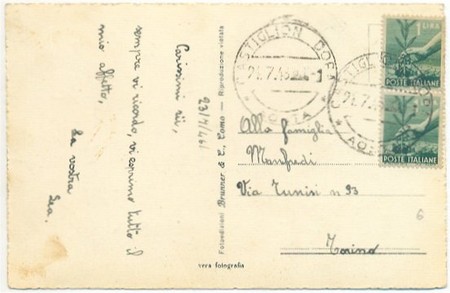 23/7/46
Carissimi zii,
sempre vi ricordo, vi esprimo tutto il
mio affetto,
la vostra
Lea.
Fotoedizioni Brunner & C., Como - Riproduzione vietata
vera fotografia
CASTIGLION DORA
AOSTA
POSTE ITALIANE
POSTE ITALIANE
Alla famiglia
Manfredi
Via Tunisi n 93
Torino
6